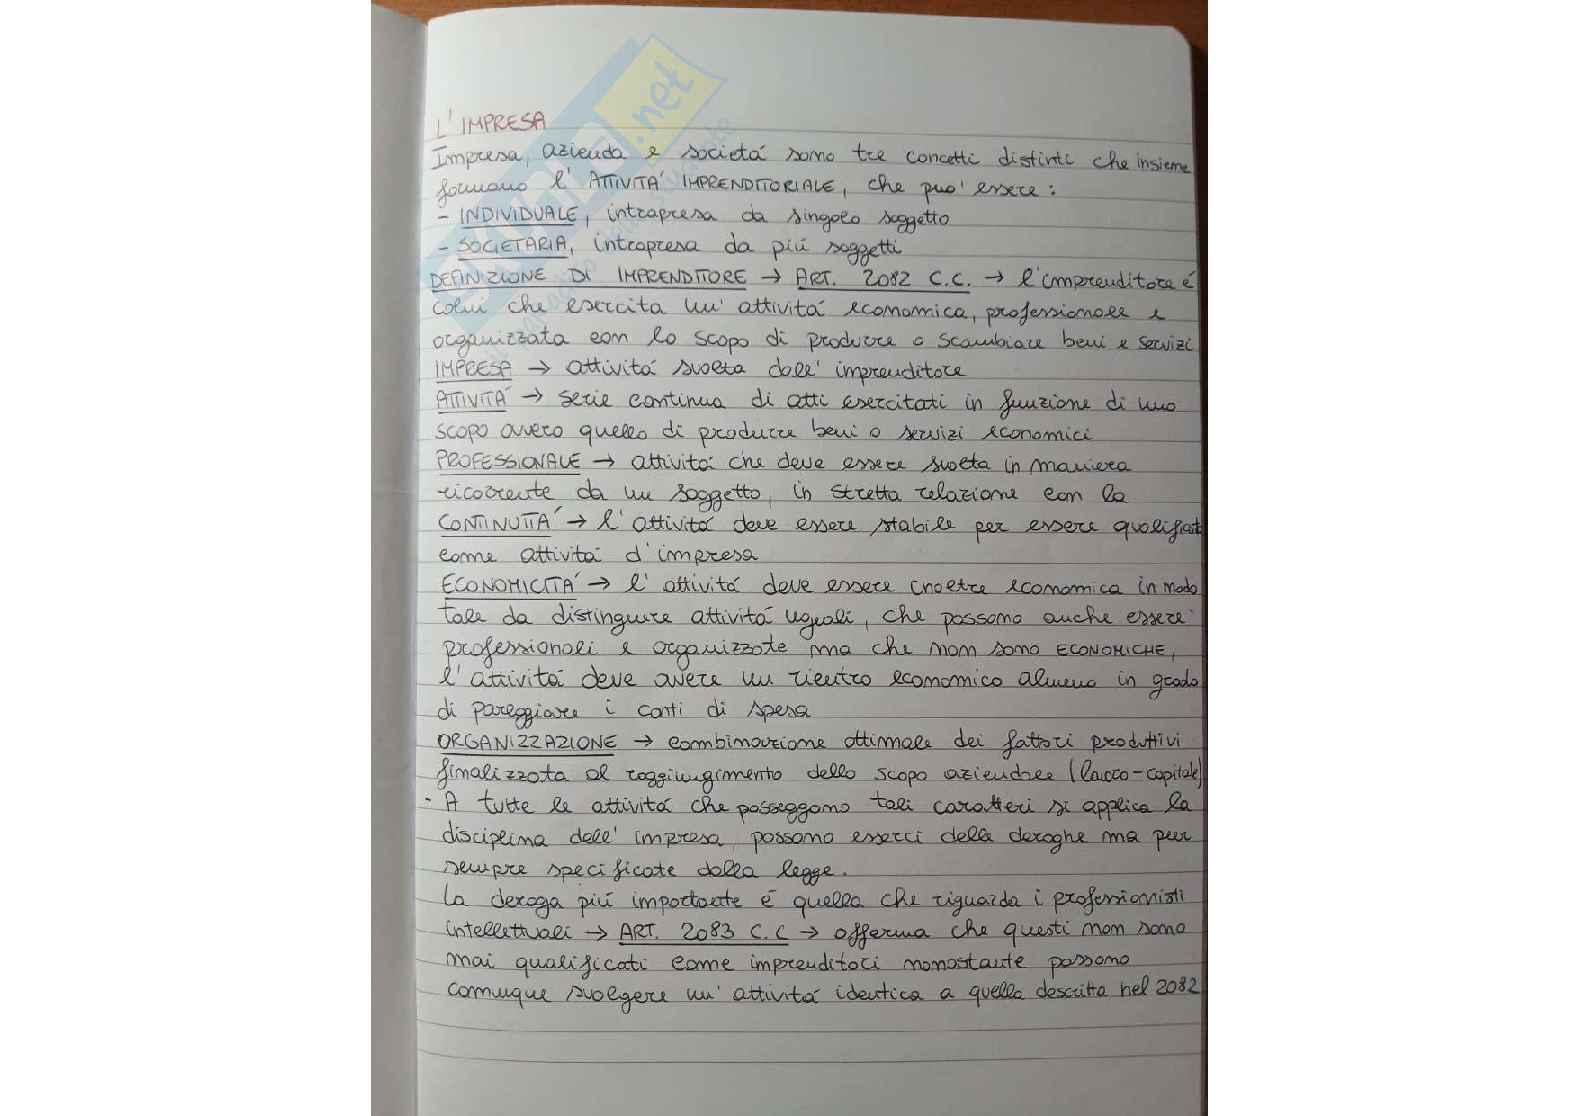 L'IMPRESA
Impresa, azienda e societá sono tre concetti distinti che insieme
formano l'ATTIVITA' IMPRENDITORIALE, che puo' essere:
- INDIVIDUALE, intrapresa da singolo soggetto
- SOCIETARIA, intrapresa da piú soggetti
DEFINIZIONE DI IMPRENDITORE → ART. 2082 C.C. → l'imprenditore é
colui che esercita un'attivitá economica, professionale e
organizzata con lo scopo di produrre o scambiare beni e servizi
IMPRESA → attivitá svolta dall'imprenditore
ATTIVITA' → serie continua di atti esercitati in funzione di uno
scopo ovvero quello di produrre beni o servizi economici
PROFESSIONALE → attivitá che deve essere svolta in maniera
ricorrente da un soggetto, in stretta relazione con la
CONTINUITA' → l'attivitá deve essere stabile per essere qualificata
come attivitá d'impresa
ECONOMICITA' → l'attivitá deve essere inoltre economica in modo
tale da distinguere attivitá uguali, che possono anche essere
professionali e organizzate ma che non sono ECONOMICHE,
l'attivitá deve avere un rientro economico almeno in grado
di pareggiare i conti di spesa
ORGANIZZAZIONE → combinazione ottimale dei fattori produttivi
finalizzata al raggiungimento dello scopo aziendale (lavoro-capitale)
· A tutte le attivitá che posseggono tali caratteri si applica la
disciplina dell'impresa, possono esserci delle deroghe ma pur
sempre specificate dalla legge.
La deroga piú importante é quella che riguarda i professionisti
intellettuali → ART. 2083 C.C → afferma che questi non sono
mai qualificati come imprenditori nonostante possono
comunque svolgere un'attivitá identica a quella descritta nel 2082
.net